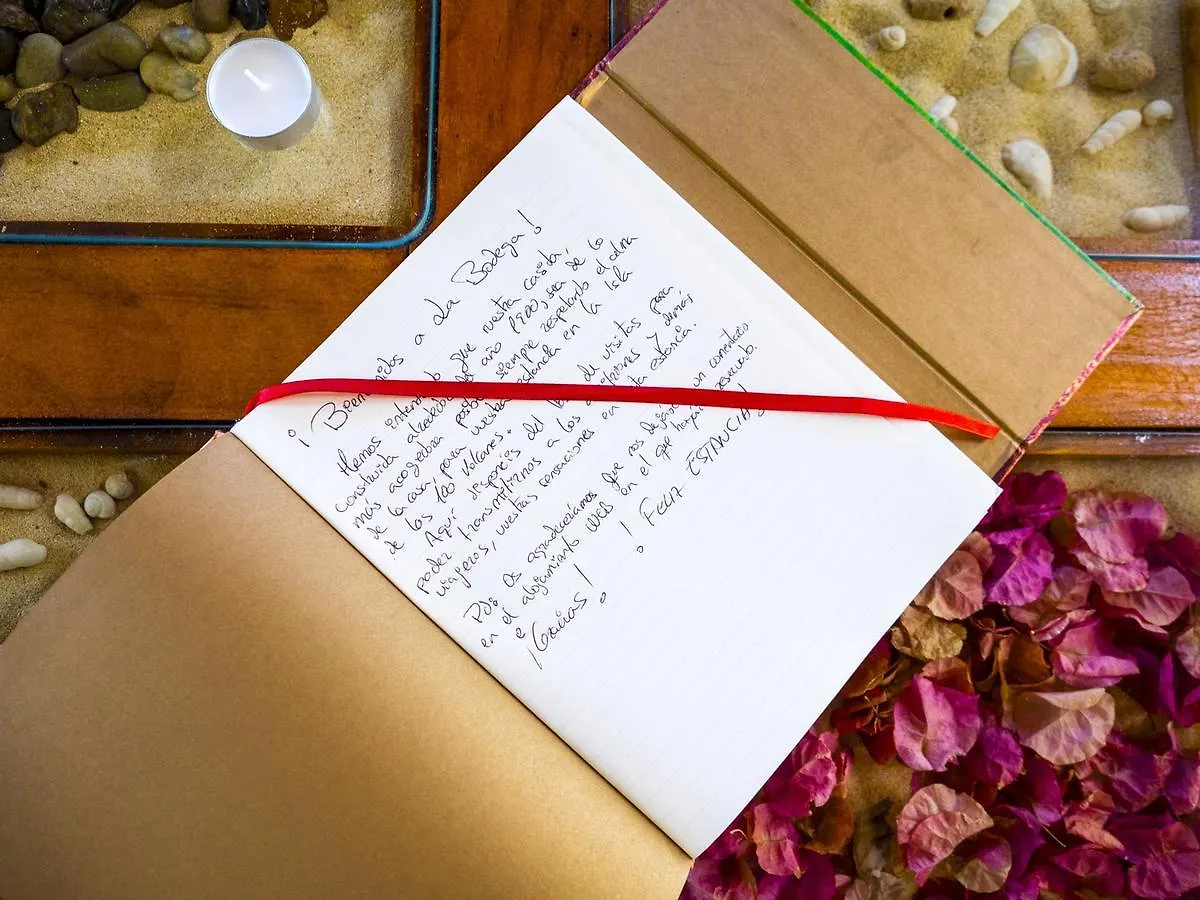 ¡Bienvenidos a La Bodega!
Hemos entendido que vuestra casita,
construida alrededor del año 1900, sea de lo
más acogedora posible siempre respetando el alma
de la casa, para vuestra estancia en la Isla
de los 100 Volcanes.
Aquí disponéis del libro de visitas para
poder transmitirnos a los anfitriones y demás
viajeros, vuestras sensaciones en esta estancia.
Pd: os agradeceríamos que nos dejárais un comentario
en el alojamiento web en el que hayáis reservado.
¡Gracias!
¡FELIZ ESTANCIA!